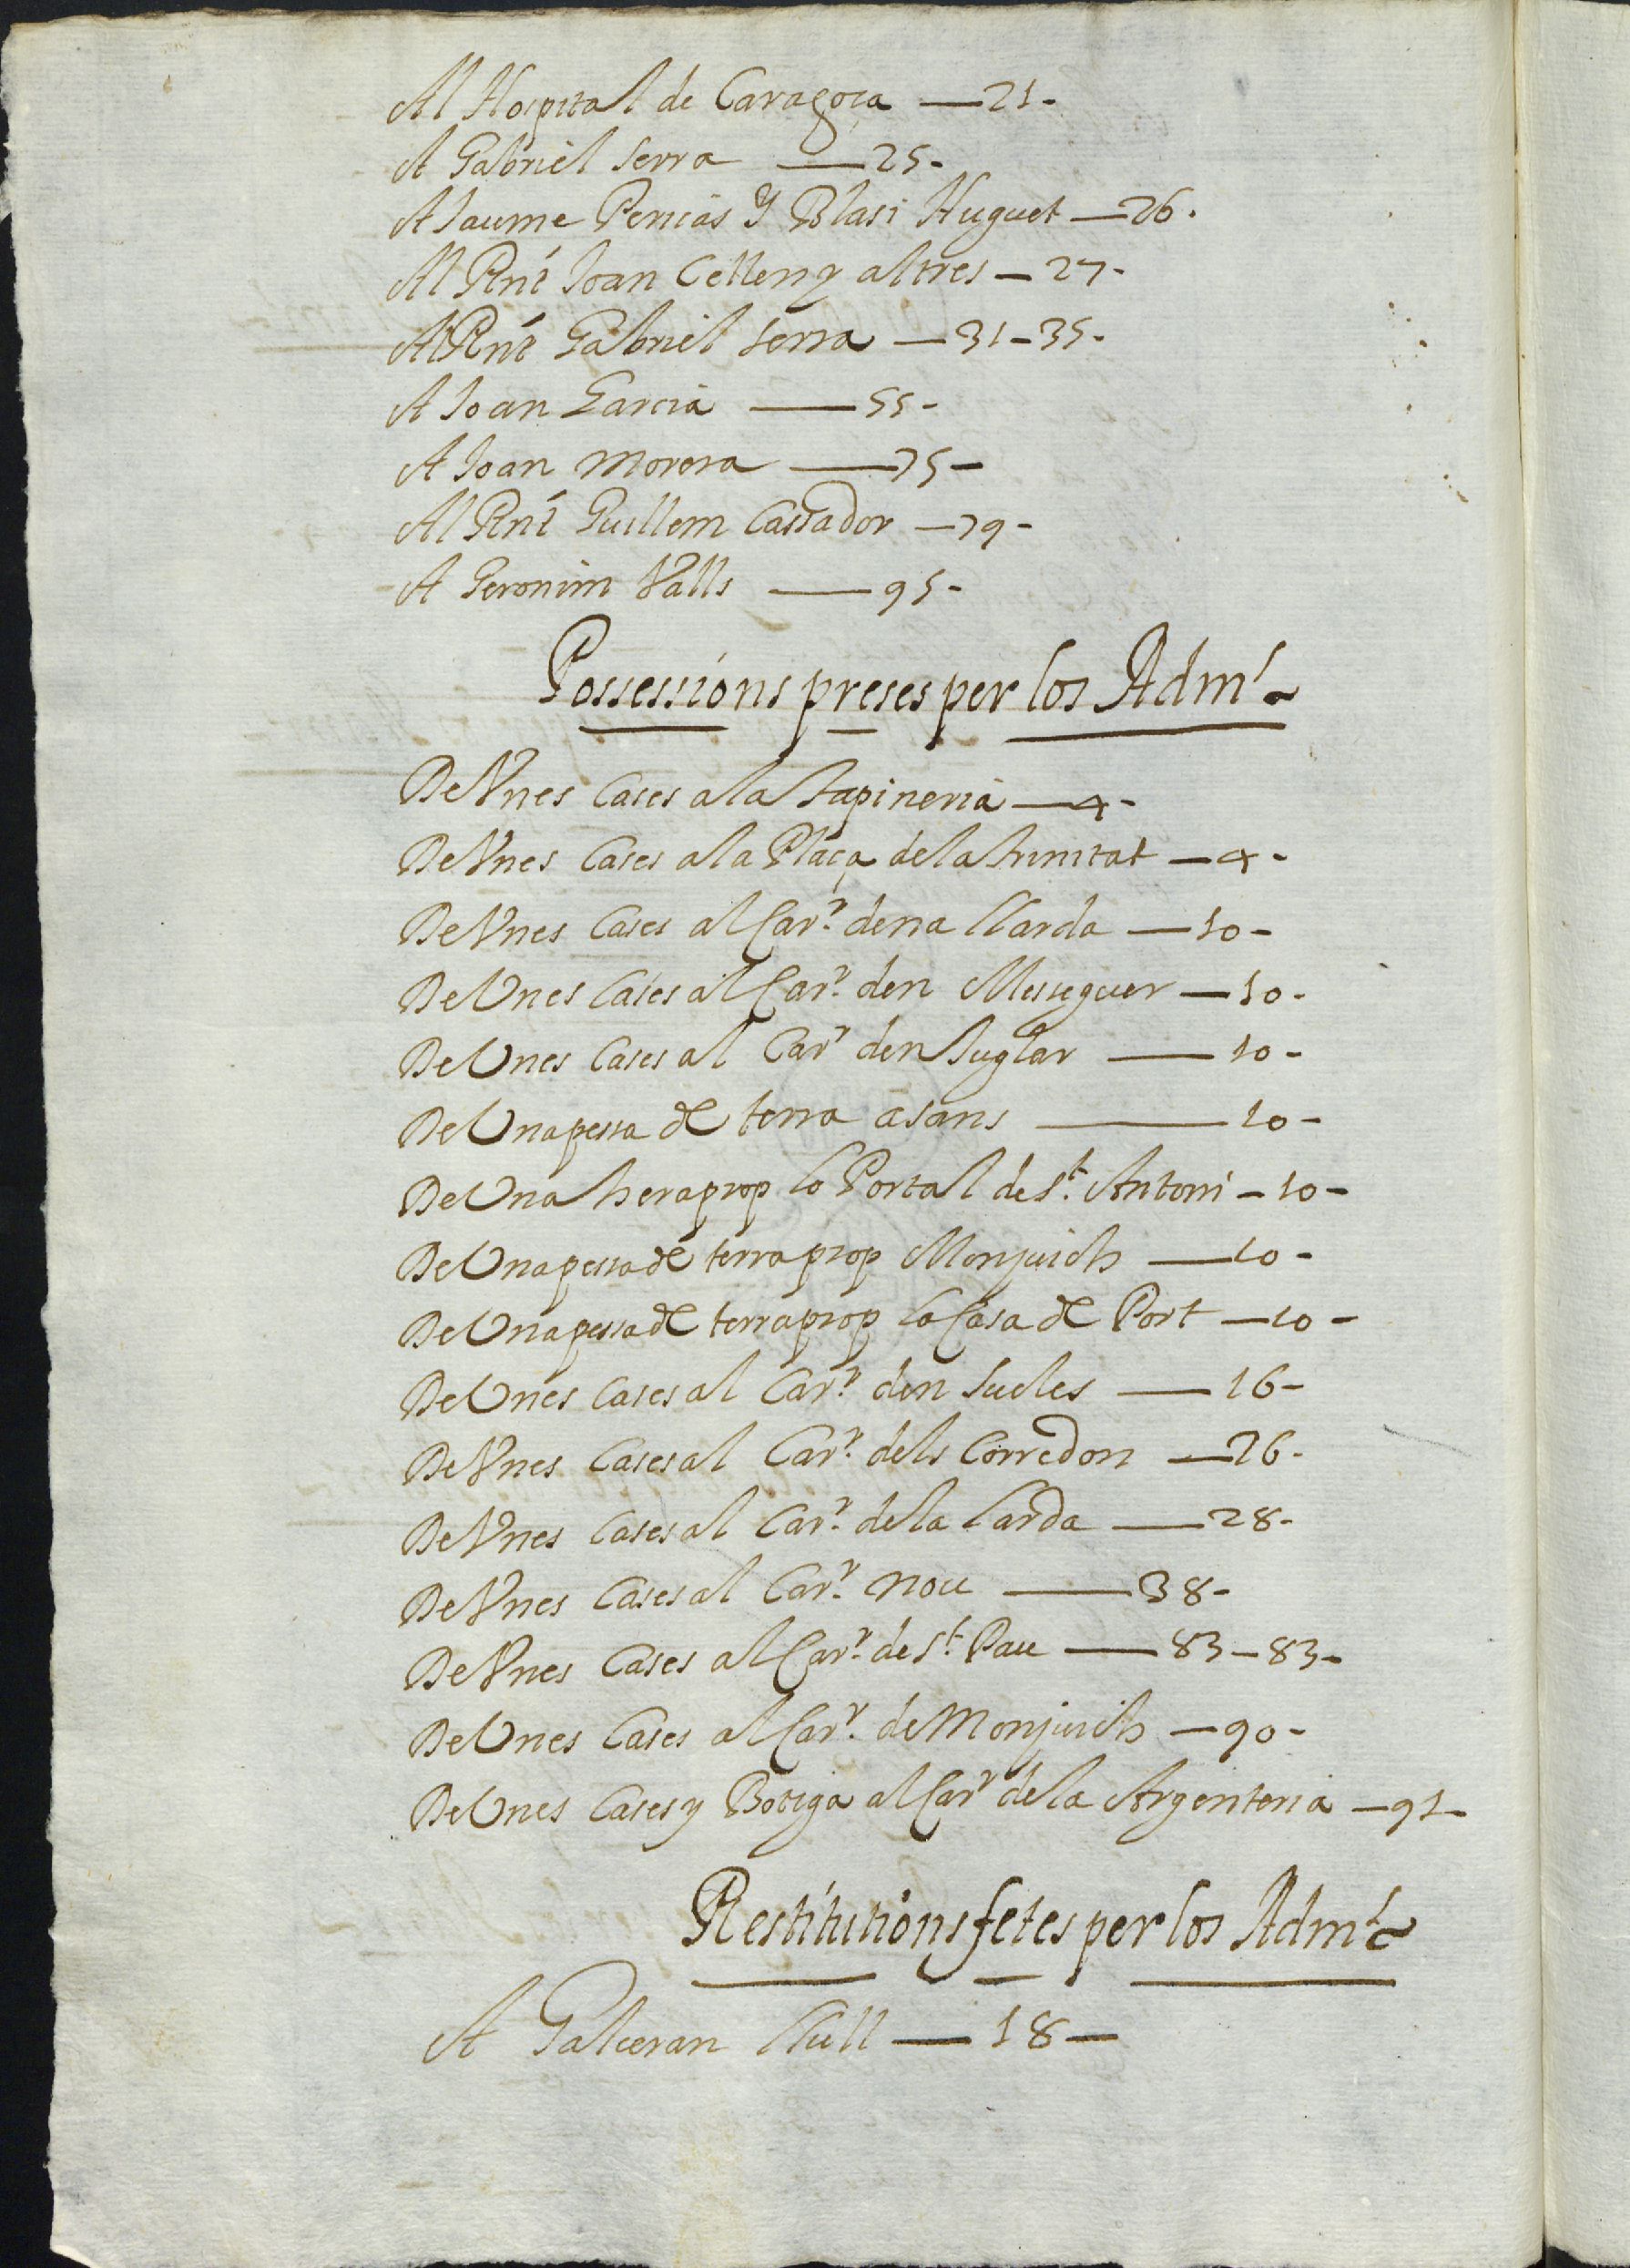 Al Hospital de Caragoça — 21-
A Gabriel Serra — 25-
A Jaume Pericas y Blasi Huguet — 26.
Al Rnt Joan Celleny altres — 27-
Al Rnt Gabriel Serra — 31-35-
A Joan Garcia — 55-
A Joan Morera — 75-
Al Rnt Guillem Cassador — 79-
A Geronim Valls — 95-
Possessions preses per los Adm.rs
De Vnes Cases a la Tapineria — 4-
De Vnes Cases a la Plaça de la Trinitat — 4-
De Vnes Cases al Car.r de na Llarda — 10-
De Vnes Cases al Car.r den Messeguer — 10-
De Vnes Cases al Car.r den Juglar — 10-
De Vna pessa de terra a Sans — 10-
De Vna hera prop lo Portal de St. Antoni — 10-
De Vna pessa de terra prop Monjuich — 10-
De Vna pessa de terra prop la Casa de Port — 10-
De Vnes Cases al Car.r den Sucles — 16-
De Vnes Cases al Car.r dels Corredors — 26-
De Vnes Cases al Car.r de la Carda — 28-
De Vnes Cases al Car.r nou — 38-
De Vnes Cases al Car.r de St. Pau — 83-83-
De Vnes Cases al Car.r de Monjuich — 90-
De Vnes Cases y Botiga al Car.r de la Argenteria — 91-
Restitutions fetes per los Adm.rs
A Galceran Llull — 18-